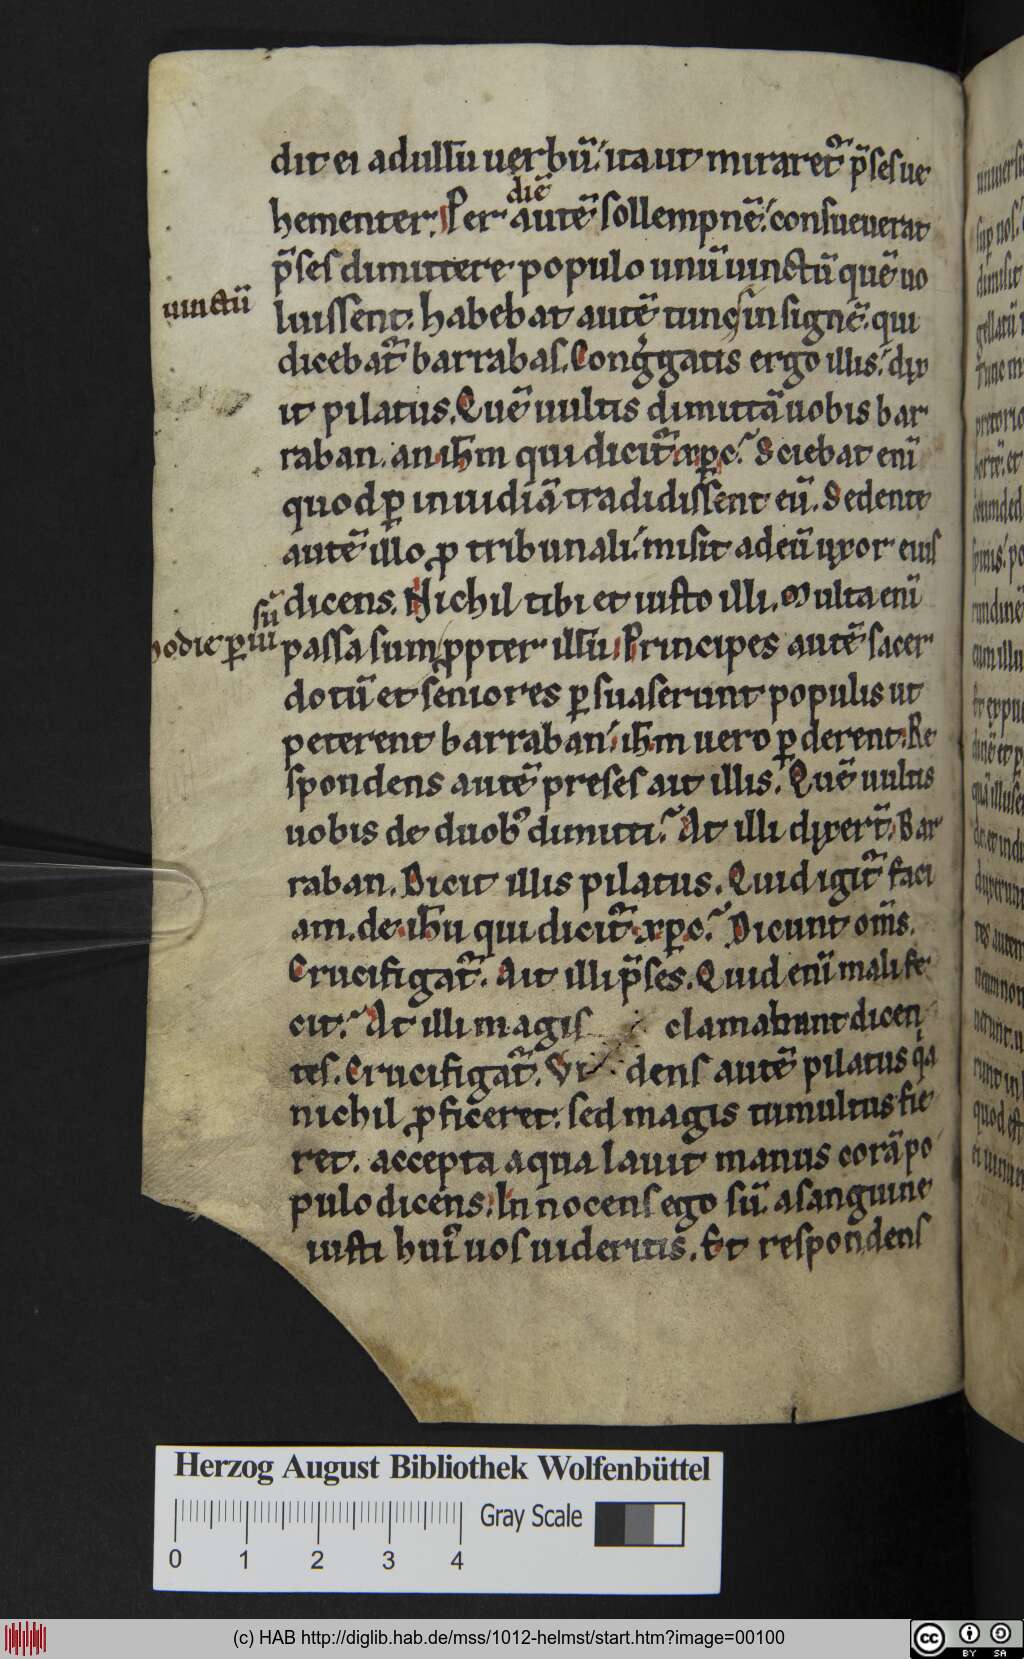 dit ei ad ullū uerbū. ita ut miraret᷑ p̄ses ue
diē
hementer. Per autē sollempnē. consueuerat
p̄ses dimittere populo unū uinctū quē uo
uinctū
luissent. habebat autē tunc insignē. qui
dicebat᷑ barrabas. Congͥgatis ergo illis. dix
it pilatus. Quē uultis dimittā uobis bar
raban. an ih̄m qui dicit᷑ xp̄c. Sciebat enī
quod ꝑ inuidiā tradidissent eū. Sedente
autē illo ꝓ tribunali. misit ad eū uxor eius
dicens. Nichil tibi et iusto illi. Multa enī
sū
hodie ꝑ ui
passa sum ꝓpter illū. Principes autē sacer
dotū et seniores ꝑsuaserunt populis ut
peterent barraban. ih̄m uero ꝑderent. Re
spondens autē preses ait illis. Quē uultis
uobis de duob᷒ dimitti. At illi dixert̄. Bar
raban. Dicit illis pilatus. Quid igit᷑ faci
am. de ih̄u qui dicit᷑ xp̄c. Dicunt om̄s.
Crucifigat᷑. Ait illi p̄ses. Quid enī mali fe
cit. At illi magis clamabant dicen
tes. Crucifigat᷑. Videns autē pilatus qͥa
nichil ꝓficeret. sed magis tumultus fie
ret. accepta aqua lauit manus corā po
pulo dicens. Innocens ego sū. a sanguine
iusti hui᷒ uos uideritis. Et respondens
Herzog August Bibliothek Wolfenbüttel
Gray Scale
0 1 2 3 4
(c) HAB http://diglib.hab.de/mss/1012-helmst/start.htm?image=00100
cc BY SA